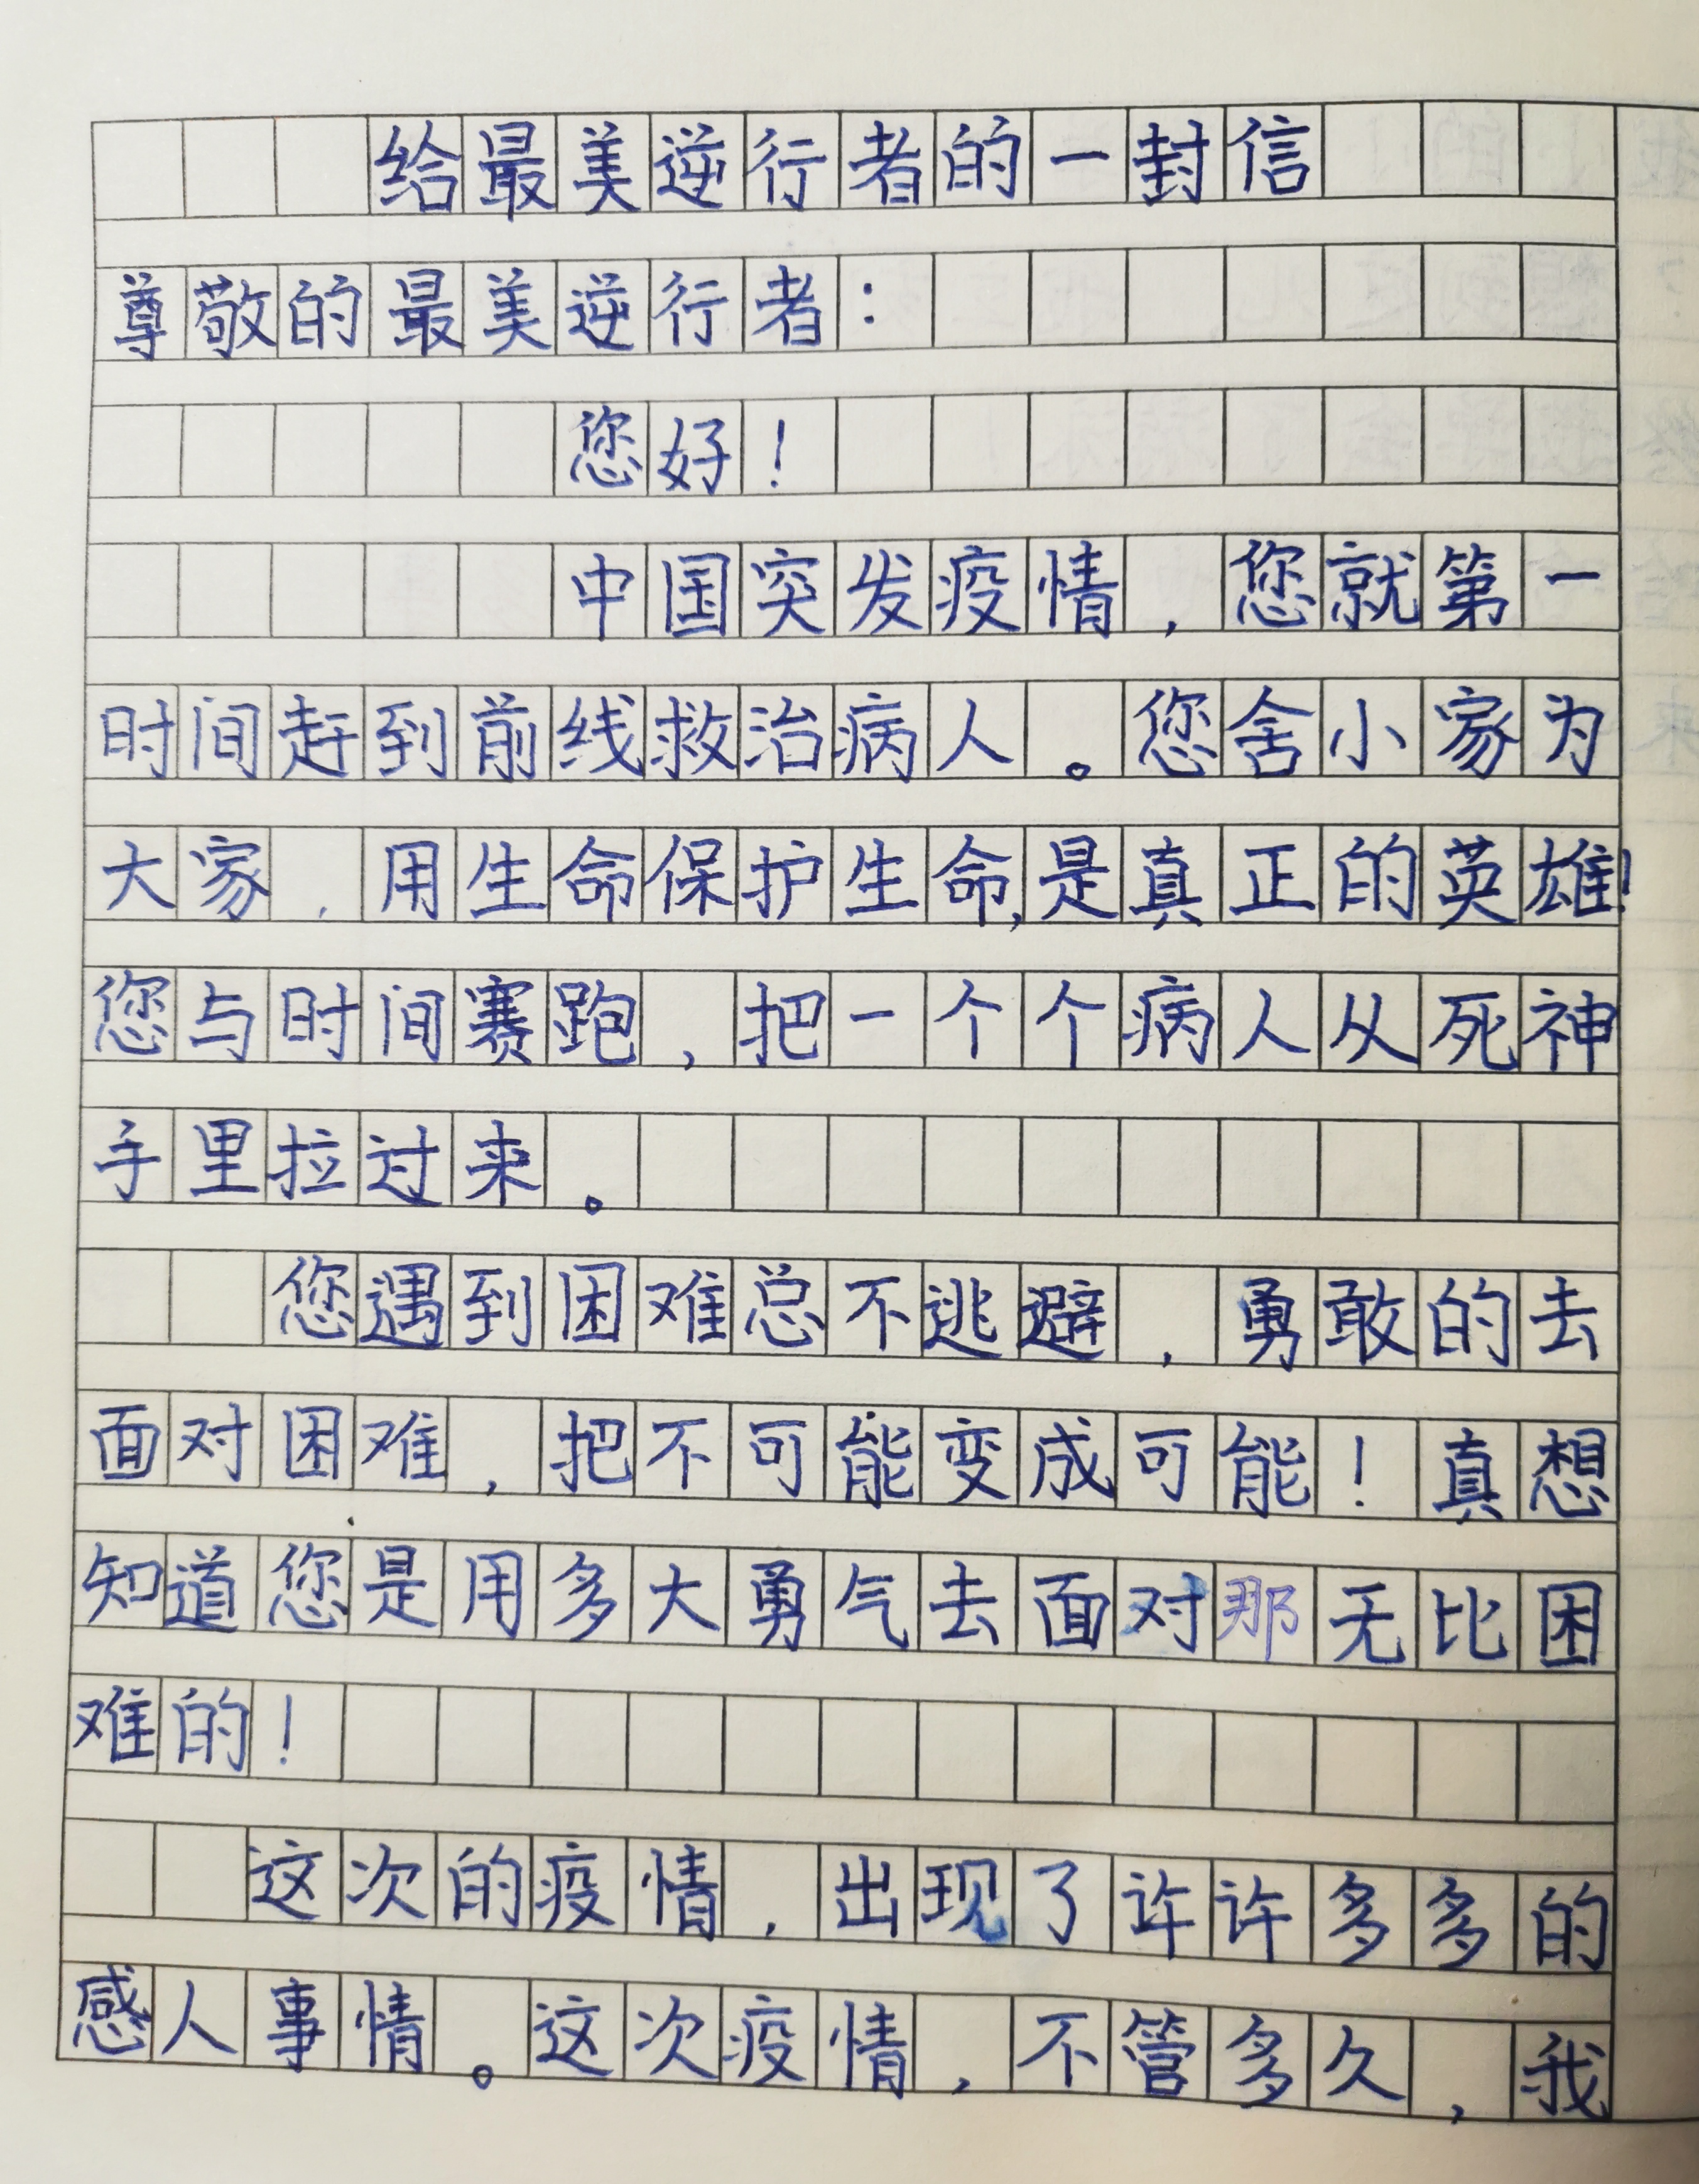 给最美逆行者的一封信
尊敬的最美逆行者：
您好！
中国突发疫情，您就第一
时间赶到前线救治病人。您舍小家为
大家，用生命保护生命，是真正的英雄！
您与时间赛跑，把一个个病人从死神
手里拉过来。
您遇到困难总不逃避，勇敢的去
面对困难，把不可能变成可能！真想
知道您是用多大勇气去面对那无比困
难的！
这次的疫情，出现了许许多多的
感人事情。这次疫情，不管多久，我